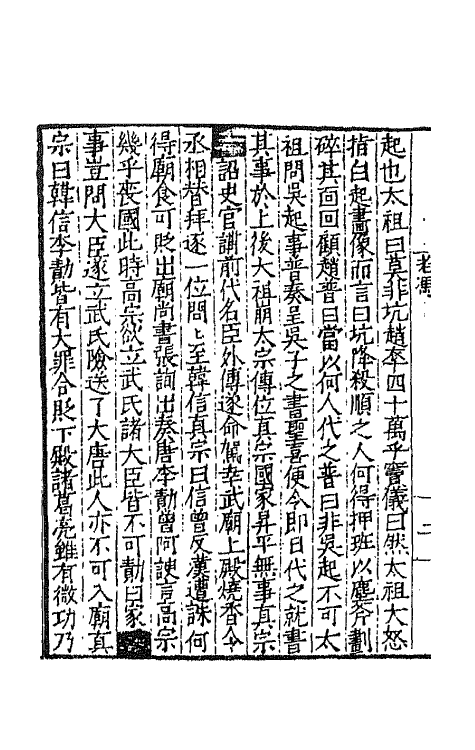 起也太祖曰莫非坑趙卒四十萬乎竇儀曰然太祖大怒
指白起畫像而言曰坑降殺順之人何得押班以塵斧劃
碎其面回顧趙普曰當以何人代之普曰非吳起不可太
祖問吳起事普奏呈吳子之書聖喜便令即日代之就書
其事於上後太祖崩太宗傳位真宗國家昇平無事真宗
詔史官講前代名臣外傳遂命駕幸武廟上殿燒香令
丞相替拜逐一位問〻至韓信真宗曰信曾反漢遭誅何
得廟食可貶出廟尚書張詢出奏唐李勣曾阿諛言高宗
幾乎喪國此時高宗欲立武氏諸大臣皆不可勣曰家
事豈問大臣遂立武氏險送了大唐此人亦不可入廟真
宗曰韓信李勣皆有大罪合貶下殿諸葛亮雖有微功乃
二